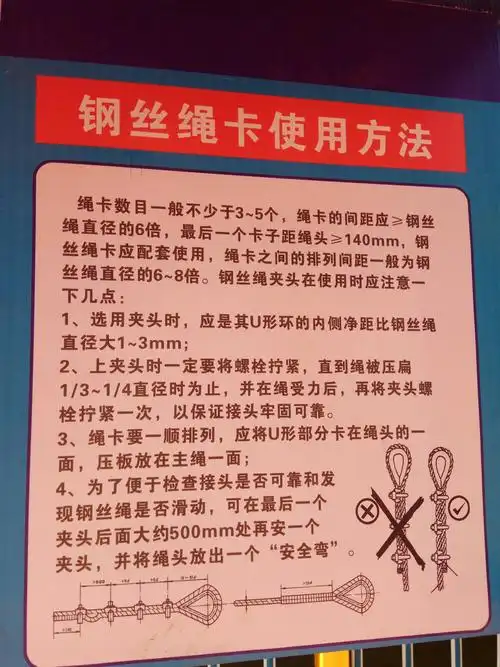 钢丝绳卡使用方法
绳卡数目一般不少于3~5个，绳卡的间距应≥钢丝
绳直径的6倍，最后一个卡子距绳头≥140mm，钢
丝绳卡应配套使用，绳卡之间的排列间距一般为钢
丝绳直径的6~8倍。钢丝绳夹头在使用时应注意一
下几点：
1、选用夹头时，应是其U形环的内侧净距比钢丝绳
直径大1~3mm；
2、上夹头时一定要将螺栓拧紧，直到绳被压扁
1/3~1/4直径时为止，并在绳受力后，再将夹头螺
栓拧紧一次，以保证接头牢固可靠。
3、绳卡要一顺排列，应将U形部分卡在绳头的一
面，压板放在主绳一面；
4、为了便于检查接头是否可靠和发
现钢丝绳是否滑动，可在最后一个
夹头后面大约500mm处再安一个
夹头，并将绳头放出一个“安全弯”。